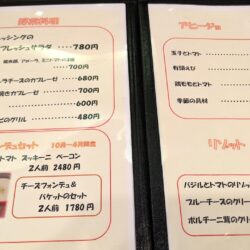 野菜料理
ッシングの
フレッシュサラダ ‥‥ 780円
‥‥700円
ラチーズのカプレーゼ ‥‥ 680円
焼きカプレーゼ ‥‥ 700円
ビのグリル ‥‥ 480円
デュセット 10月〜4月限定
トマト ズッキーニ ベーコン
2人前 2480円
チーズフォンデュ&
バケットのセット
2人前 1780円
アヒージョ
玉子とトマト
有頭えび
鶏ももとトマト
季節の具材
リゾット
バジルとトマトのリゾッ
ブルーチーズのクリー
ポルチーニ茸のクリー